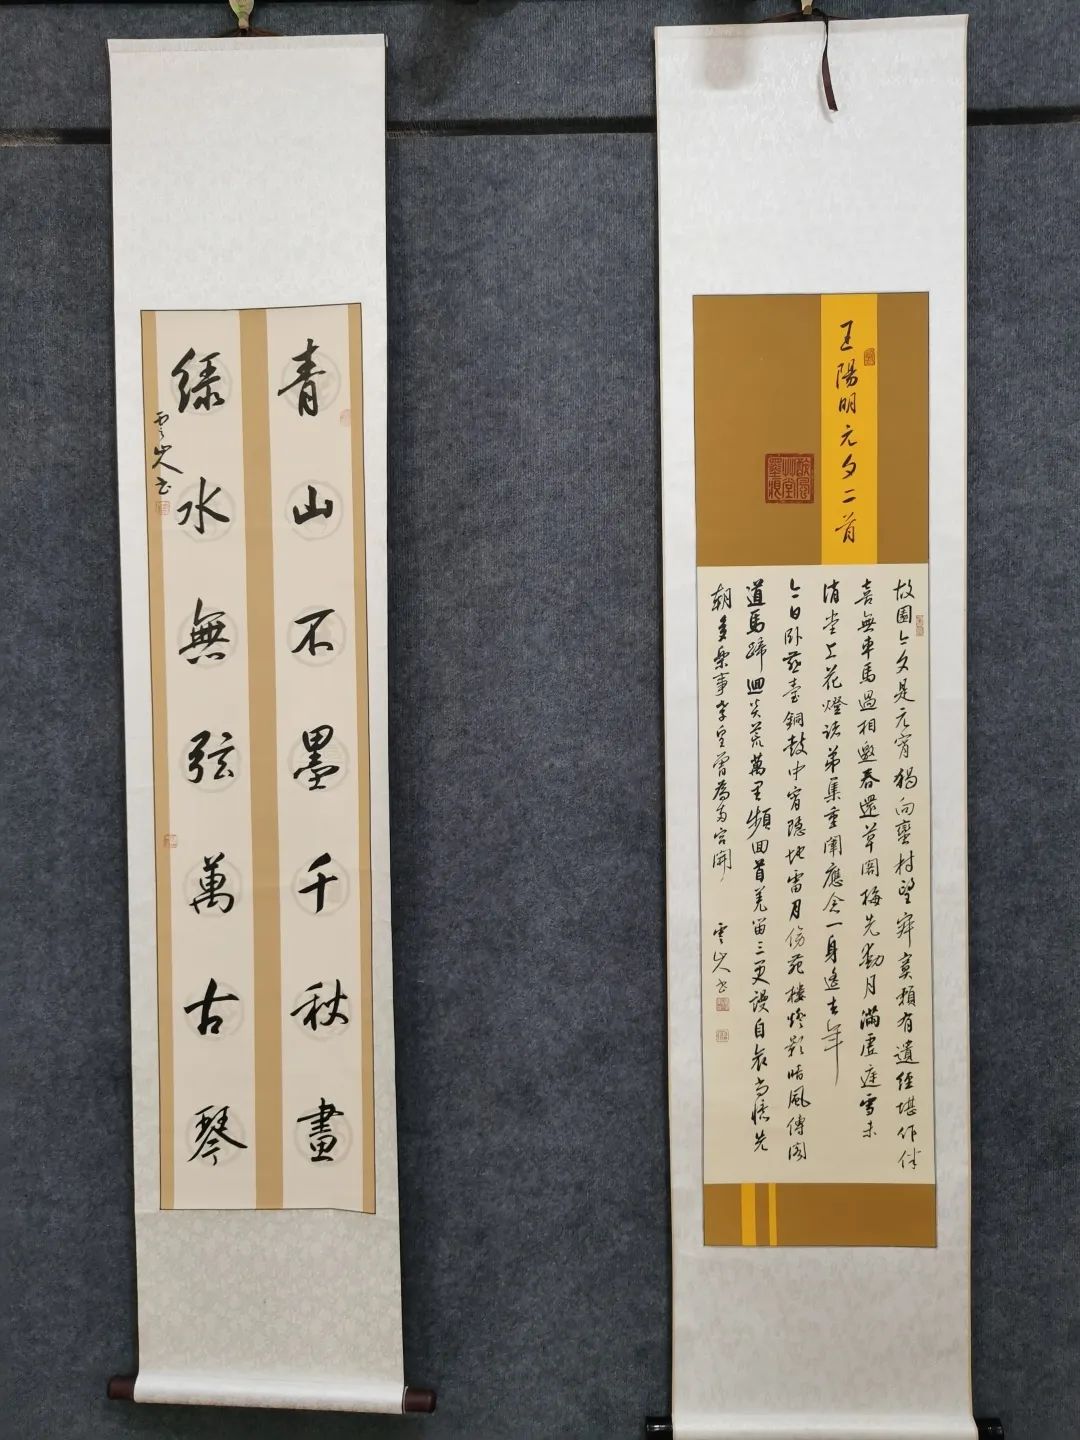 青山不墨千秋畫
綠水無弦萬古琴
王陽明元夕二首
故園今夕是元宵獨向蠻村望寂寞賴有遺經堪作伴
喜無車馬過相邀春還草閣梅先動月滿虛庭雪未
消堂上花燈諸弟集重闈應念一身遙去年
今日卧燕臺銅鼓中宵隱地雷月傍苑樓燈影暗風傳閣
道馬蹄迴炎荒萬里頻回首羌笛三更謾自哀尚憶先
朝多樂事孝皇曾為兩宮開